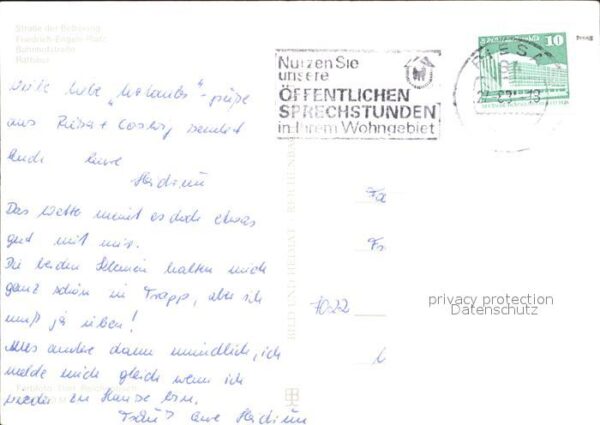 Straße der Befreiung
Friedrich-Engels-Platz
Bahnhofstraße
Rathaus
Nutzen Sie
unsere
ÖFFENTLICHEN
SPRECHSTUNDEN
in Ihrem Wohngebiet
RIESA
10
liebe "Urlaubs"-grüße
aus Riesa + sendet
Euch Eure
Das Wetter meint es doch etwas
gut mit mir.
Die beiden halten mich
ganz schön in Trapp, aber ich
muß ja üben!
Alles andere dann mündlich, ich
melde mich gleich wenn ich
wieder zu Hause bin.
Eure
Fa
Fr.
1022
BILD UND HEIMAT REICHENBACH
privacy protection
Datenschutz